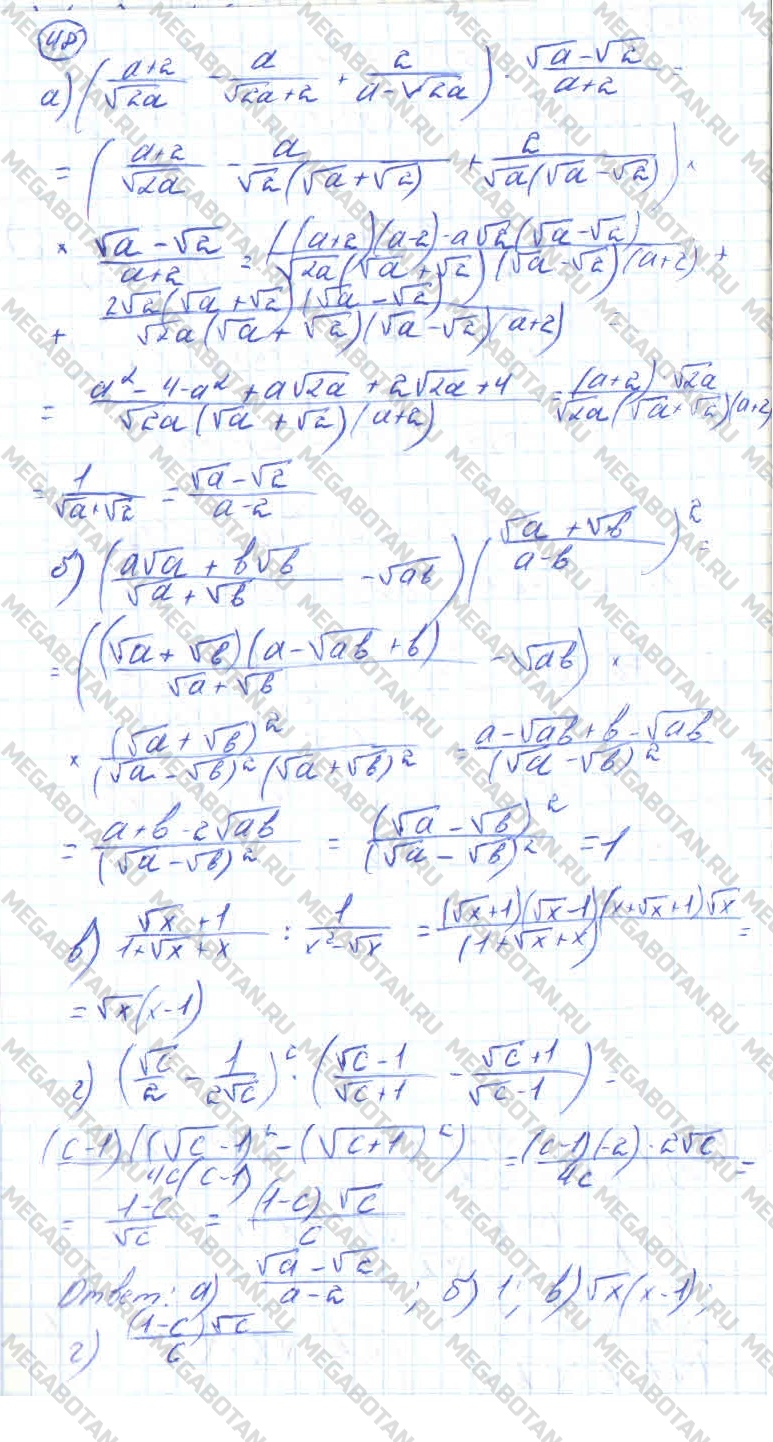 48
а) ( (a+2)/√2a - a/(√2a+2) + 2/(a-√2a) ) · (√a-√2)/(a+2) =
= ( (a+2)/√2a - a/(√2(√a+√2)) + 2/(√a(√a-√2)) ) ·
× (√a-√2)/(a+2) = ((a+2)(a-2)-a√2(√a-√2))/(√2a(√a+√2)(√a-√2)(a+2)) +
+ (2√2(√a+√2)(√a-√2))/(√2a(√a+√2)(√a-√2)(a+2)) =
= (a²-4-a²+a√2a+2√2a+4)/(√2a(√a+√2)(a+2)) = ((a+2)·√2a)/(√2a(√a+√2)(a+2))
= 1/(√a+√2) = (√a-√2)/(a-2)
б) ( (a√a+b√b)/(√a+√b) - √ab ) ( (√a+√b)/(a-b) )² =
= ( ((√a+√b)(a-√ab+b))/(√a+√b) - √ab ) ×
× (√a+√b)²/((√a-√b)²(√a+√b)²) = (a-√ab+b-√ab)/(√a-√b)²
= (a+b-2√ab)/(√a-√b)² = (√a-√b)²/(√a-√b)² = 1
в) (√x+1)/(1+√x+x) : 1/(x²-√x) = ((√x+1)(√x-1)(x+√x+1)√x)/(1+√x+x) =
= √x(x-1)
г) ( √c/2 - 1/(2√c) )² · ( (√c-1)/(√c+1) - (√c+1)/(√c-1) ) =
((c-1)((√c-1)²-(√c+1)²))/(4c(c-1)) = ((c-1)(-2)·2√c)/4c =
= (1-c)/√c = ((1-c)√c)/c
Ответ: а) (√a-√2)/(a-2); б) 1; в) √x(x-1);
г) ((1-c)√c)/c
MEGABOTAN.RU